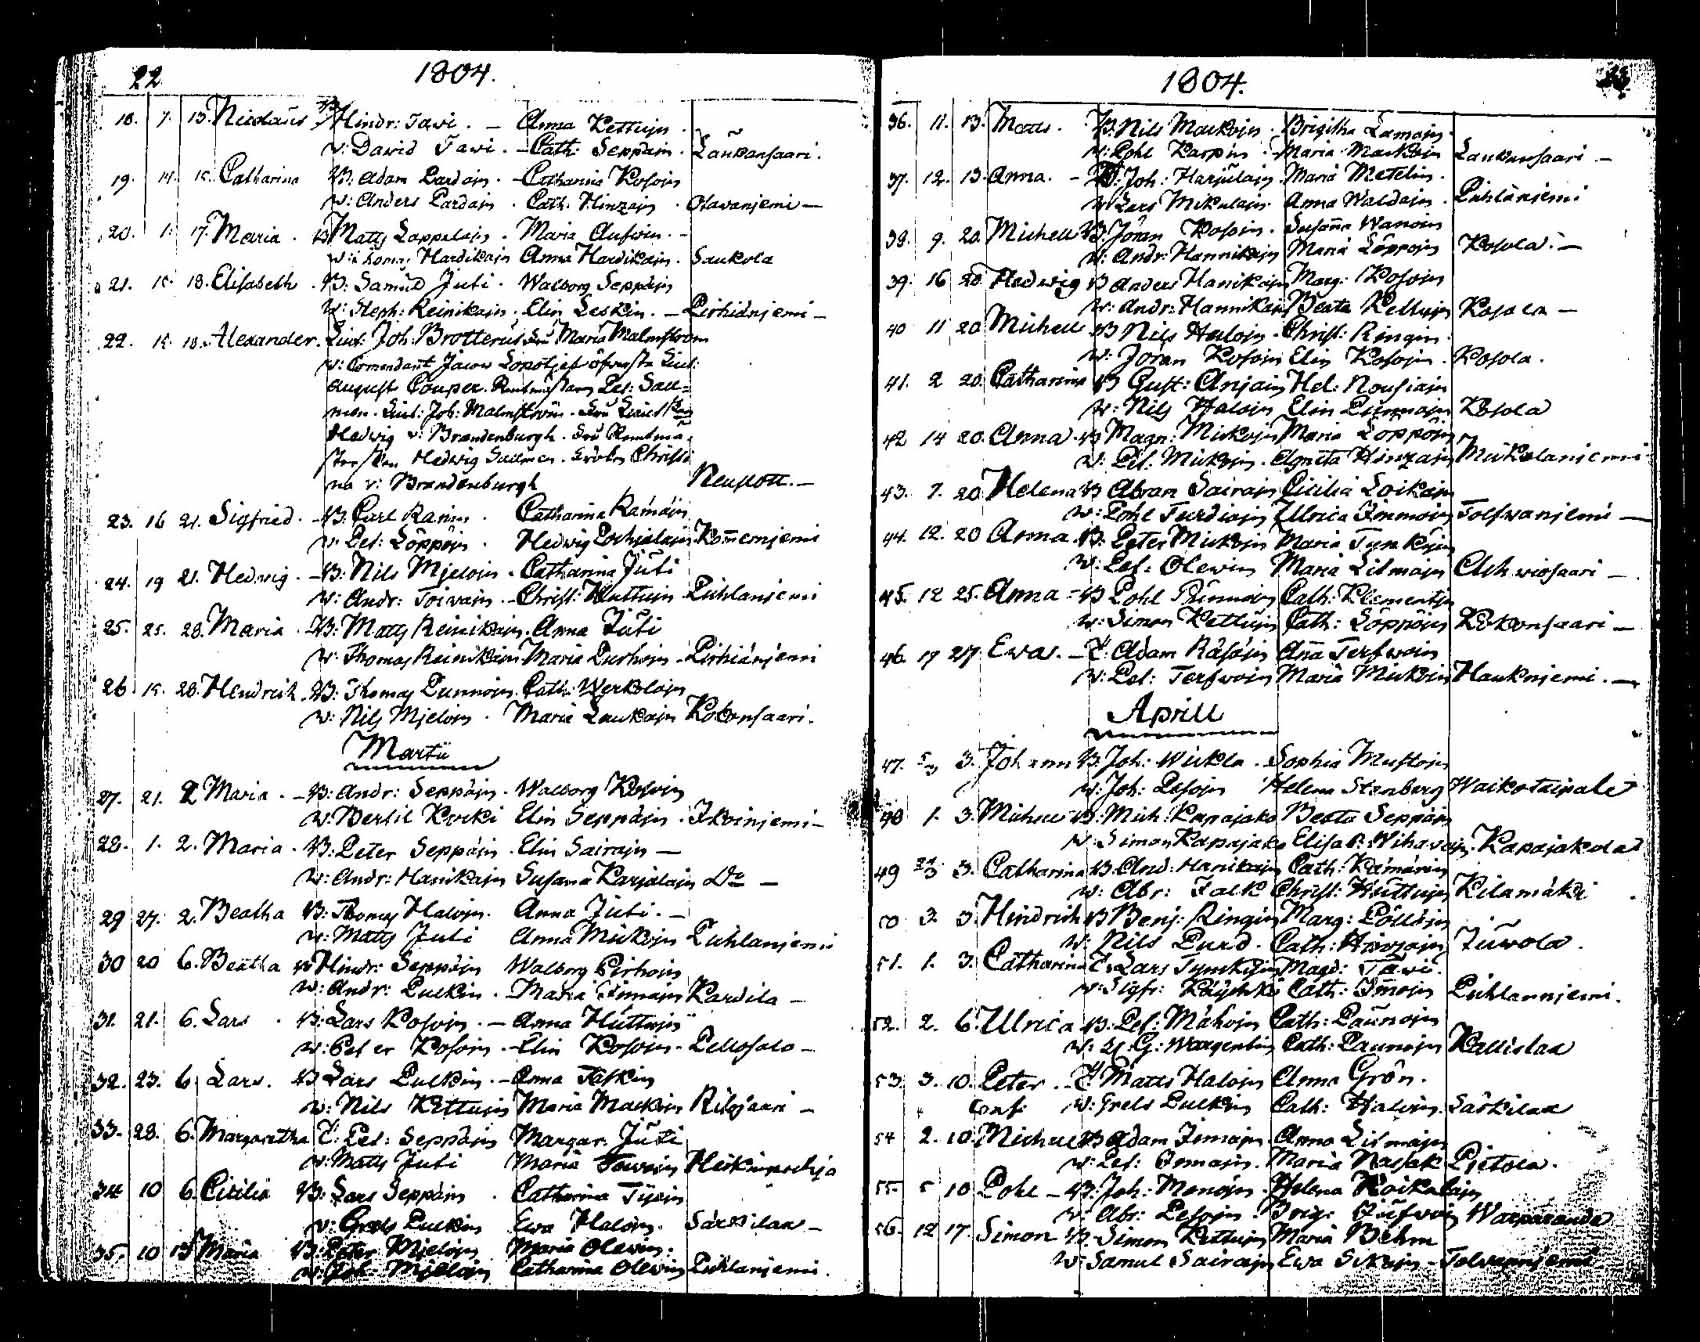 22 1804.
18. 7. 13. Nicolaus B: Hindr: Tawi. - Anna Kettuin
w: David Tawi. - Cath: Seppäin. Laukansaari.
19. 14. 15. Catharina B: Adam Pardain. - Catharina Kosoin
w: Anders Pardain. Cath. Hinzain. Olavanjemi -
20. 1. 17. Maria. B Matts Loppalain. Maria Aufwin. -
w: Thomas Hardikain Anna Hardikain. Saukola
21. 15. 18. Elisabeth. B: Samuel Juti. Walborg Seppäin
w: Steph: Reinikain. - Elin Leskin. - Pirhiänjemi -
22. 15. 18. Alexander. Lieut: Joh: Brotterus Fru Maria Malmstrom
w: Comendant Jacow öfwerste Lieut:
August Couper. Rentmästaren Pet: Sael=
man. Lieut: Joh: Malmström. Fru Lieutskan
Hedwig v: Brandenburgh. Fru Rentmä=
starskan Hedwig Saelman. Fröken Christi
na v: Brandenburgh Neuslott. -
23. 16 21. Sigfried. - B: Carl Ranin. Catharina Rämäin
w: Pet: Löppöin. Hedwig Pochjalain Kommernjemi
24. 19 21. Hedwig. - B: Nils Mjeloin. Catharina Juti
w: Andr: Toiwain. - Christ: Huttuin Pihlanjemi
25. 25. 28. Maria. B: Matts Reinikain. Anna Juti
w: Thomas Reinikain Maria Purhoin - Pirhiänjemi
26 15. 28. Hendrich. B: Thomas Punnoin. Cath: Werkoloin
w: Nils Mjeloin. Maria Laukain Kokonsaari.
Martii
27. 21. 2 Maria. - B: Andr: Seppäin. Walborg Kosoin
w: Bertil Kocki Elin Seppäin. Ikoinjemi -
28. 1. 2. Maria. B: Peter Seppäin. Elin Sairain -
w: Andr: Hanikain Susanna Karjalain Do -
29 27. 2. Beatha B: Thomas Haloin. Anna Juti. -
w: Matts Juti Anna Mickoin Pihlanjemi
30 20 6. Beatha B Hindr: Seppäin Walborg Pirhoin
w: Andr: Pulkin. Maria Immain Kardila -
31. 21. 6. Lars. B: Lars Kosoin. - Anna Huttuin
w: Peter Kosoin - Elin Kosoin - Pellosalo -
32. 23. 6. Lars. B Lars Pulkin. - Anna Taskin
w: Nils Kettuin Maria Mackoin Ritosaari -
33. 28. 6. Margaretha Pet: Seppäin Margar. Juti
w: Matts Juti Maria Tawain Heikinpohja
34. 10 6. Cicilia B: Lars Seppäin. Catharina
w: Grels Pulkin Ewa Haloin. Särkilax -
35. 10 13 Maria B: Peter Mjeloin Maria Olewin.
w: Joh: Mjeloin Catharina Olewin Pihlanjemi.
1804.
36. 11. 13. Matts. B: Nils Mackoin. Brigitha Lamain.
w: Pohl Karpin - Maria Mackoin Laukansaari -
37. 12. 13. Anna. - B: Joh: Harjulain Maria Matelin.
w: Lars Mikulain. Anna Waldain. Pihlanjemi
38. 9. 20. Michell B: Jöran Kosoin. Susanna Wanoin
w: Andr: Hannikain Maria Löppöin Kosola. -
39. 16 20. Hedwig B Anders Hanikain Marg: Kosoin
w: Andr: Hannikain Beata Kettuin Kosola -
40 11 20 Michell B Nils Haloin. Christ: Ringin.
w: Jöran Kosoin Elin Kosoin. Kosola.
41. 2 20. Catharina B Gust: Anjain Hel: Nousiain
w: Nils Haloin Elin Punnoin Kosola
42. 14 20. Anna B Magn: Mickoin Maria Löppöin
w: Pet: Mickoin. Agneta Hinzain Mickolanjemi
43. 7. 20. Helena B Abram Sairain Cicilia Loikain
w: Pohl Turdiain Ulrica Immoin Tolfwanjemi -
44. 12. 20 Anna B: Peter Mickoin Maria
w: Pet: Olewin Maria Litmain Ahwiosaari -
45. 12 25. Anna - B Pohl Punnoin Cath: Klementin
w: Simon Kettuin Cath: Löppöin Kokonsaari -
46. 17 27. Ewa. - Adam Räsäin Anna Terfwoin
w: Pet: Terfwoin Maria Mickoin Hauknjemi. -
Aprill
47. 5/3 3. Johann B: Joh: Wickla. Sophia Mustoin
w: Joh: Pesoin Helena Stenberg Waikotaipalet
48 1. 3. Michell B: Mich: Kapajako Beata Seppäin
w: Simon Kapajako Elisab: Wihavain Kapajakola
49 3. Catharina B: And: Hanikain Cath: Kämäräin
w: Abr: Falk Christ: Huttuin Kilamäki
50 3. 3. Hindrich B Benj: Ringin Marg: Pölläin
w: Nils Purd. Cath: Hinzain Juwola.
51. 1. 3. Catharina Lars Tynkkyin Magd: Tawi.
w: Sigfr: Käyhkö Cath: Imoin Pihlannjemi.
52. 2. 6. Ulrica B. Pet: Mähoin Cath: Paunoin
w: Dj. G: Wargentin Cath: Paunoin Kallislax
53. 3. 10. Peter. - Matts Haloin Anna Grön.
w: Grels Pulkin Cath: Haloin. Särkilax
54 2. 10. Michael B Adam Immain. Anna Litmain
w: Pet: Immain. Maria Nassak Pjetola.
55. 5 10 Pohl - B: Joh: Monoin Helena Koikalain
w: Abr: Pesoin Brig: Aufwoin Warparanda
56. 12 17. Simon B Simon Kettuin Maria Böhm
w: Samul Sairain Ewa Sikain - Tolvannjemi